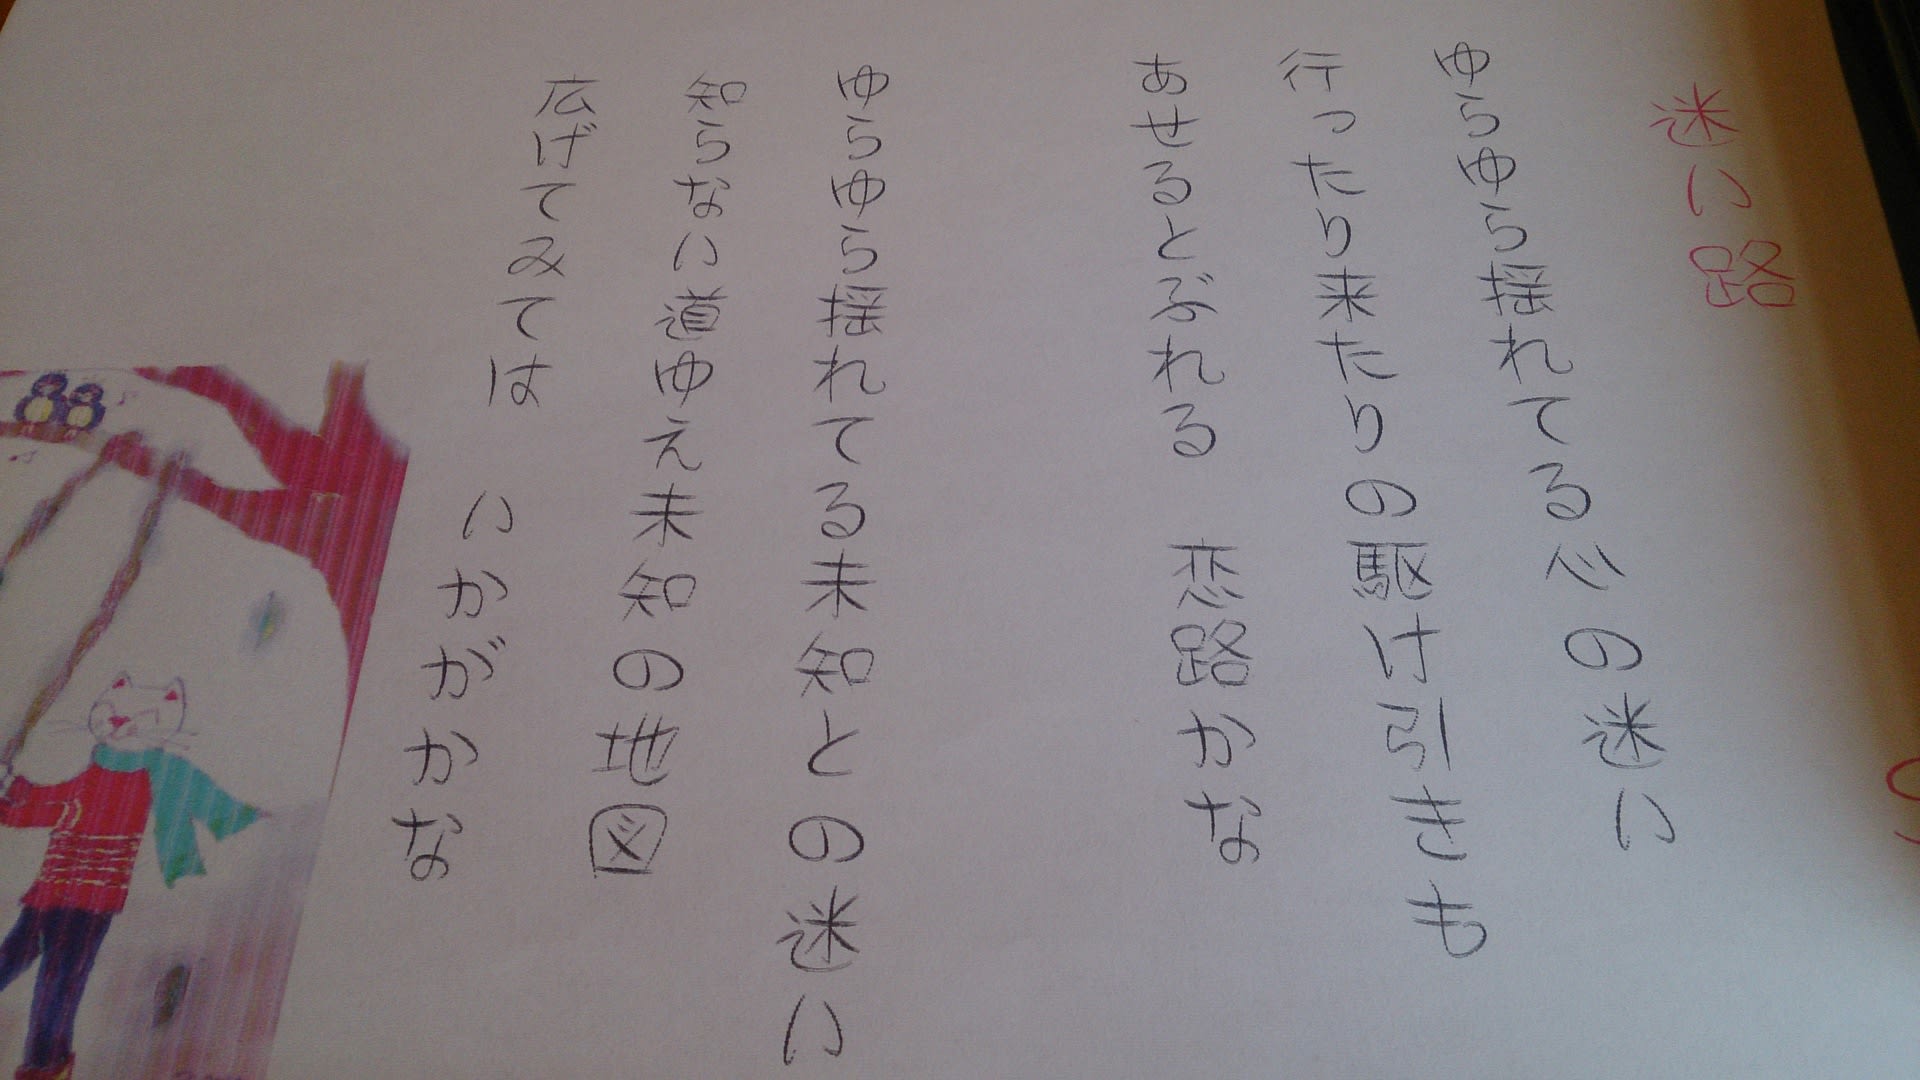 迷い路
ゆらゆら揺れてる心の迷い
行ったり来たりの駆け引きも
あせるとぶれる 恋路かな
ゆらゆら揺れてる未知との迷い
知らない道ゆえ未知の地図
広げてみては いかがかな